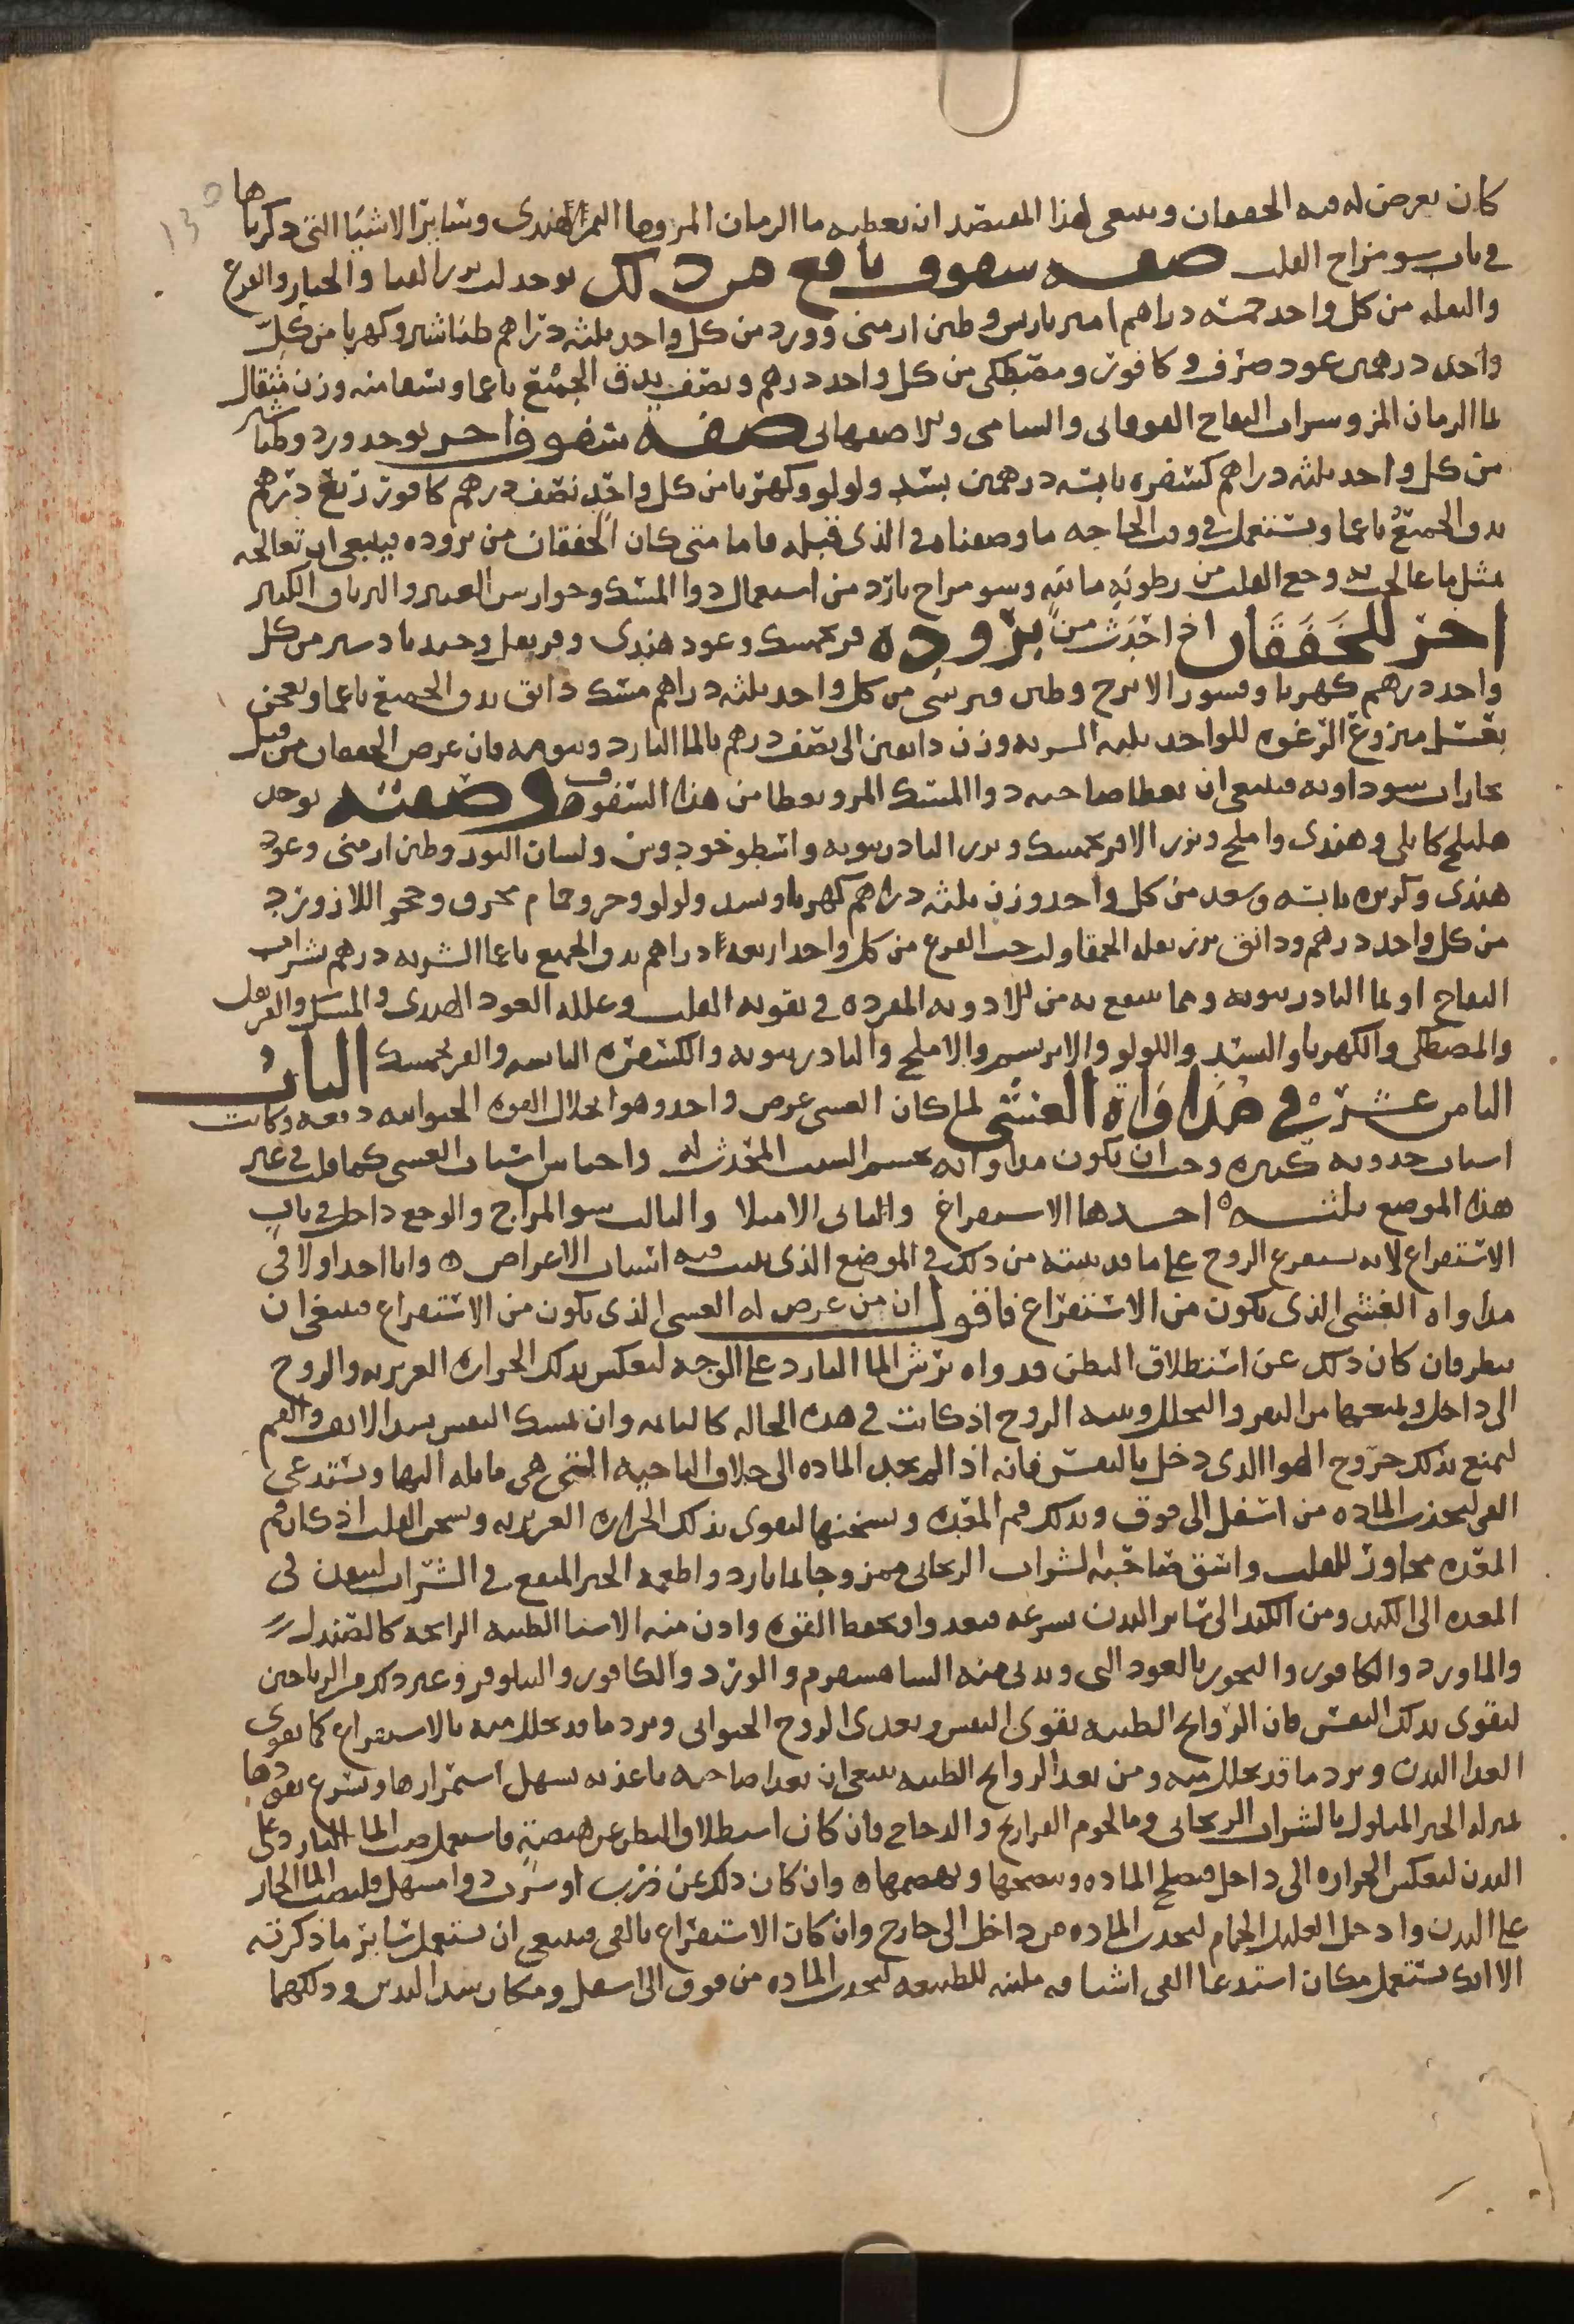 130
كان يعرض له فيه الخفقان وينبغي لهذا المفتصد ان يعطيه ما الرمان المز وما التمر الهندي وسائر الاشيا التي ذكرناها
في باب سو مزاج القلب صفة سفوف نافع من ذلك يوخد لب بزر القثا والخيار والقرع
والبقله من كل واحد خمسه دراهم امير باريس وطين ارمني وورد من كل واحد ثلثه دراهم طباشير وكهربا من كل
واحد درهمين عود صرف وكافور ومصطكى من كل واحد درهم ونصف يدق الجميع ناعما ويسقا منه وزن مثقال
بما الرمان المز وشراب التفاح القوقاني والشامي والاصفهاني صفة سفوف اخر يوخد ورد وطباشير
من كل واحد ثلثه دراهم كسفره يابسه درهمين بسد ولولو وكهربا من كل واحد نصف درهم كافور ربع درهم
يدق الجميع ناعما ويستعمل في وقت الحاجه ما وصفناه في الذي قبله فاما متى كان الخفقان من بروده فينبغي ان تعالجه
بمثل ما عالجت به وجع القلب من رطوبه مائيه وسو مزاج بارد من استعمال دوا المسك وجوارس العنبر والترياق الكبير
اخر للخفقان اذا حدث من بروده فرنجمسك وعود هندي وقرنفل وجندبادستر من كل
واحد درهم كهربا وقشور الاترج وطين قبرسي من كل واحد ثلثه دراهم مسك دانق يدق الجميع ناعما ويعجن
بعسل منزوع الرغوه للواحد ثلثه الشربه وزن دانقين الى نصف درهم بالما البارد وشربه فان عرض الخفقان من قبل
بخارات سوداويه فينبغي ان يعطا صاحبه دوا المسك المر ويعطا من هذا السفوف وصفته يوخد
هليلج كابلي وهندي واملج وبزر الافرنجمسك وبزر البادرنبويه واسطوخودوس ولسان الثور وطين ارمني وعود
هندي وكزبره يابسه وسعد من كل واحد وزن ثلثه دراهم كهربا وبسد ولولو وحرير خام محرق وحجر اللازورد
من كل واحد درهم ودانق بزر بقله الحمقا ولب حب القرع من كل واحد اربعة دراهم يدق الجميع ناعما الشربه درهم بشراب
التفاح او بما البادرنبويه ومما ينتفع به من الادويه المفرده في تقويه القلب وعلله العود الهندي والمسك والقرنفل
والمصطكى والكهربا والبسد واللولو والابريسم والاملج والبادرنبويه والكسفره اليابسه والفرنجمسك الباب
الثامن عشر في مداواة الغشي لما كان الغشي عرض واحد وهو انحلال القوه الحيوانيه دفعه وكانت
اسباب حدوثه كثيره وجب ان يكون مداواته بحسب السبب المحدث له واجناس اسباب الغشي كما قلت في غير
هذا الموضع ثلثه احدها الاستفراغ والثاني الامتلا والثالث سو المزاج والوجع داخل في باب
الاستفراغ لانه يستفرغ الروح على ما قد بينته من ذلك في الموضع الذي بينت فيه اسباب الاعراض وانا اخذ اولا في
مداواه الغشي الذي يكون من الاستفراغ فاقول ان من عرض له الغشي الذي يكون من الاستفراغ فينبغي ان
ينظر فان كان ذلك عن استطلاق البطن فدواه برش الما البارد على الوجه لتعكس بذلك الحراره الغريزيه والروح
الى داخل ويمنعها من التفرق والتحلل وينبه الروح اذ كانت في هذه الحاله كالنايمه وان تمسك النفس بسد الانف والفم
ليمنع بذلك خروج الهوا الذي دخل بالنفس فانه اذا لم يجذب الماده الى خلاف الناحيه التي هي مايله اليها ويستدعي
القي ليجذب الماده من اسفل الى فوق ويدلك فم المعده ويسخنها ليقوى بذلك الحراره الغريزيه ويسخن القلب اذ كان فم
المعده مجاور للقلب واسق صاحبه الشراب الريحاني ممزوجا بما بارد واطعمه الخبز المنقع في الشراب لينفذ في
المعده الى الكبد ومن الكبد الى سائر البدن بسرعه فيغذوا ويحفظ القوه وادن منه الاشيا الطيبه الرايحه كالصندل
والماورد والكافور والبخور بالعود الني ويدنى منه الشاهسفرم والورد والكافور والنيلوفر وغير ذلك من الرياحين
لتقوى بذلك النفس فان الروايح الطيبه تقوى النفس وتغذى الروح الحيواني وترد ما قد تحلل منه بالاستفراغ كما يقوى
الغذا البدن ويرد ما قد تحلل منه ومن بعد الروايح الطيبه ينبغي ان يغذا صاحبه باغذيه سهل استمرارها ويسرع نفوذها
بمنزله الخبز المبلول بالشراب الريحاني وما لحوم الفراريج والدجاج فان كان استطلاق البطن عن هيضه فاستعمل صب الما البارد على
البدن لتعكس الحراره الى داخل فيصلح الماده وينضجها ويهضمها وان كان ذلك عن ذرب او شرب دوا مسهل فليصب الما الحار
على البدن وادخل العليل الحمام ليجذب الماده من داخل الى خارج وان كان الاستفراغ بالقي فينبغي ان تستعمل سائر ما ذكرته
الا انك تستعمل مكان استدعا القي اشيافه ملينه للطبيعه ليجذب الماده من فوق الى اسفل ومكان شد اليدين ودلكهما